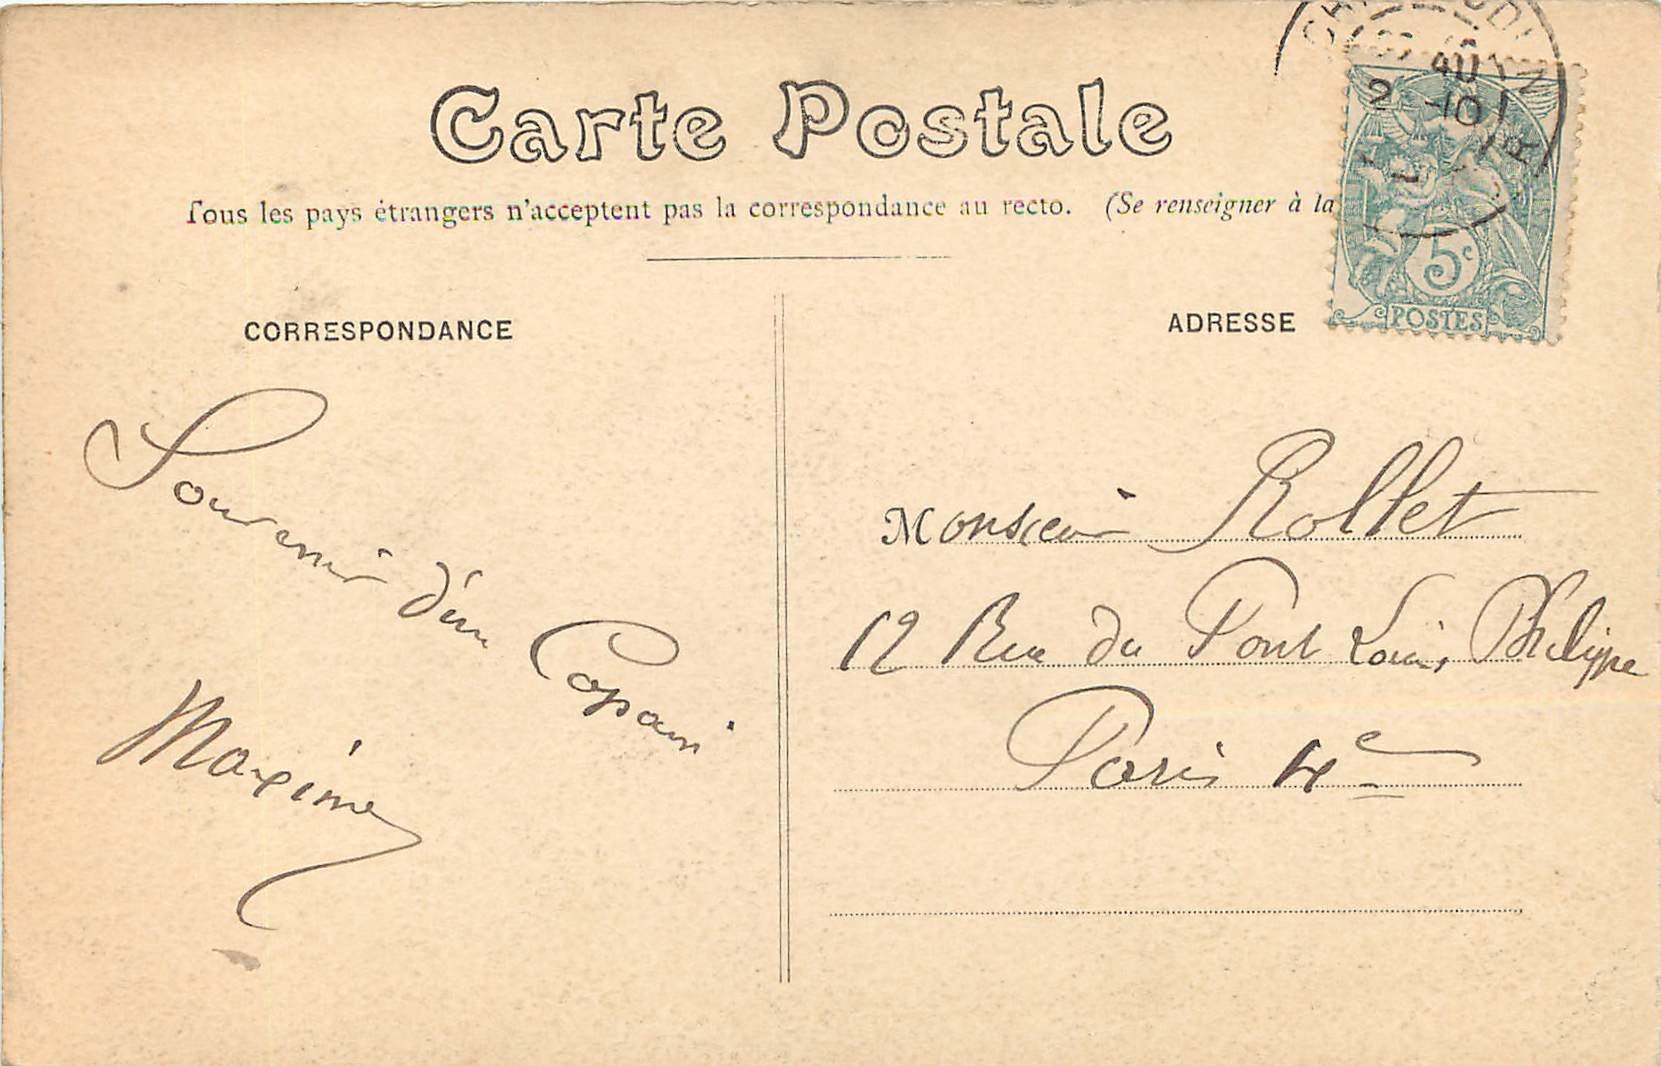 Carte Postale
Tous les pays étrangers n'acceptent pas la correspondance au recto. (Se renseigner à la
CORRESPONDANCE
ADRESSE
5c
POSTES
2 -10
Souvenir d'un Copain
Maxime
Monsieur Rollet
12 Rue du Pont Louis Philippe
Paris 4e